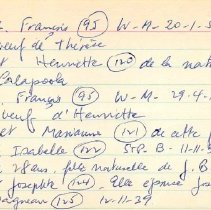 François (95) W-M-20-1-3
veuf de Thérèse
et Henriette (120) de la nati
Calapooia
Français (95) W-M-29.4-
veuf d'Henriette
et Marianne (121) de cette
Isabelle (122) StP. B-11-11-
28 ans. fille naturelle de J.B
Josephte (124). Elle épouse Jos
Gagneau (125) 12-11-39